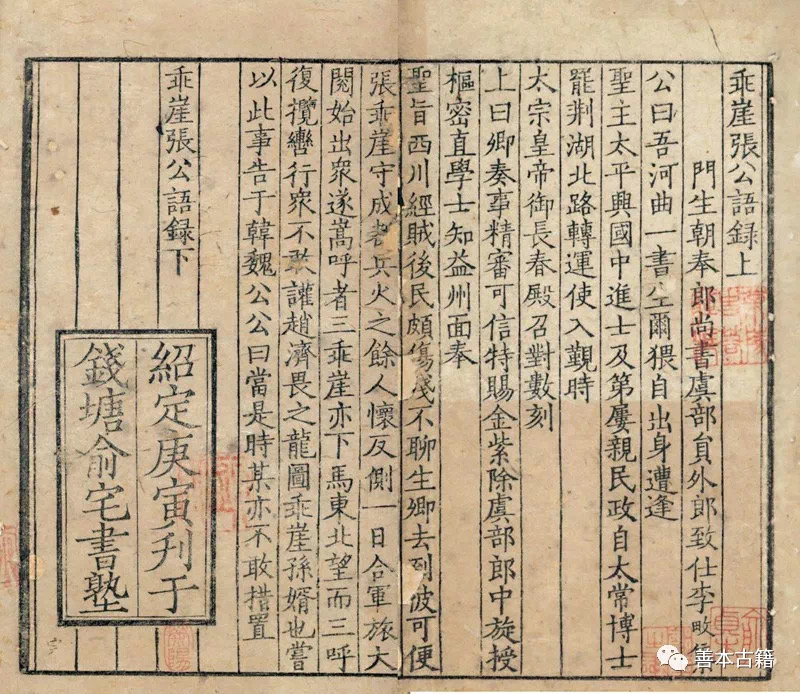 乖崖張公語録上
門生朝奉郎尚書虞部貟外郎致仕李畋集
公曰吾河曲一書生爾猥自出身遭逢
聖主太平興國中進士及第屢親民政自太常博士
罷荆湖北路轉運使入覲時
太宗皇帝御長春殿召對數刻
上曰卿奏事精審可信特賜金紫除虞部郎中旋授
樞密直學士知益州面奉
聖旨西川經賊後民頗傷殘不聊生卿去到彼可便
張乖崖守成都兵火之餘人懷反側一日合軍旅大
閱始出衆遂嵩呼者三乖崖亦下馬東北望而三呼
復攬轡行衆不敢讙趙濟畏之龍圖乖崖孫婿也嘗
以此事告于韓魏公公曰當是時某亦不敢措置
乖崖張公語録下
紹定庚寅刋于
錢塘俞宅書塾
善本古籍